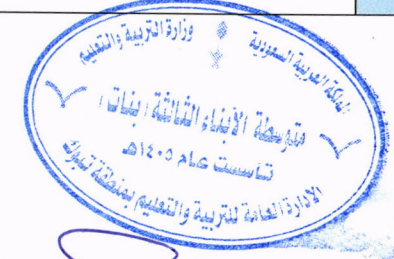 المملكة العربية السعودية
وزارة التربية والتعليم
متوسطة الأبناء الثالثة (بنات)
تأسست عام ١٤٠٥هـ
الادارة العامة للتربية والتعليم بمنطقة تبوك